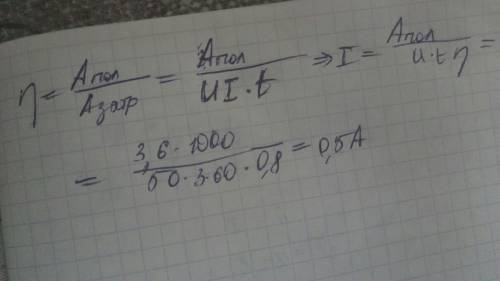 η = Апол / Азатр = Апол / UI·t ⇒ I = Апол / U·t η =
= 3,6·1000 / 50·3·60·0,8 = 0,5A